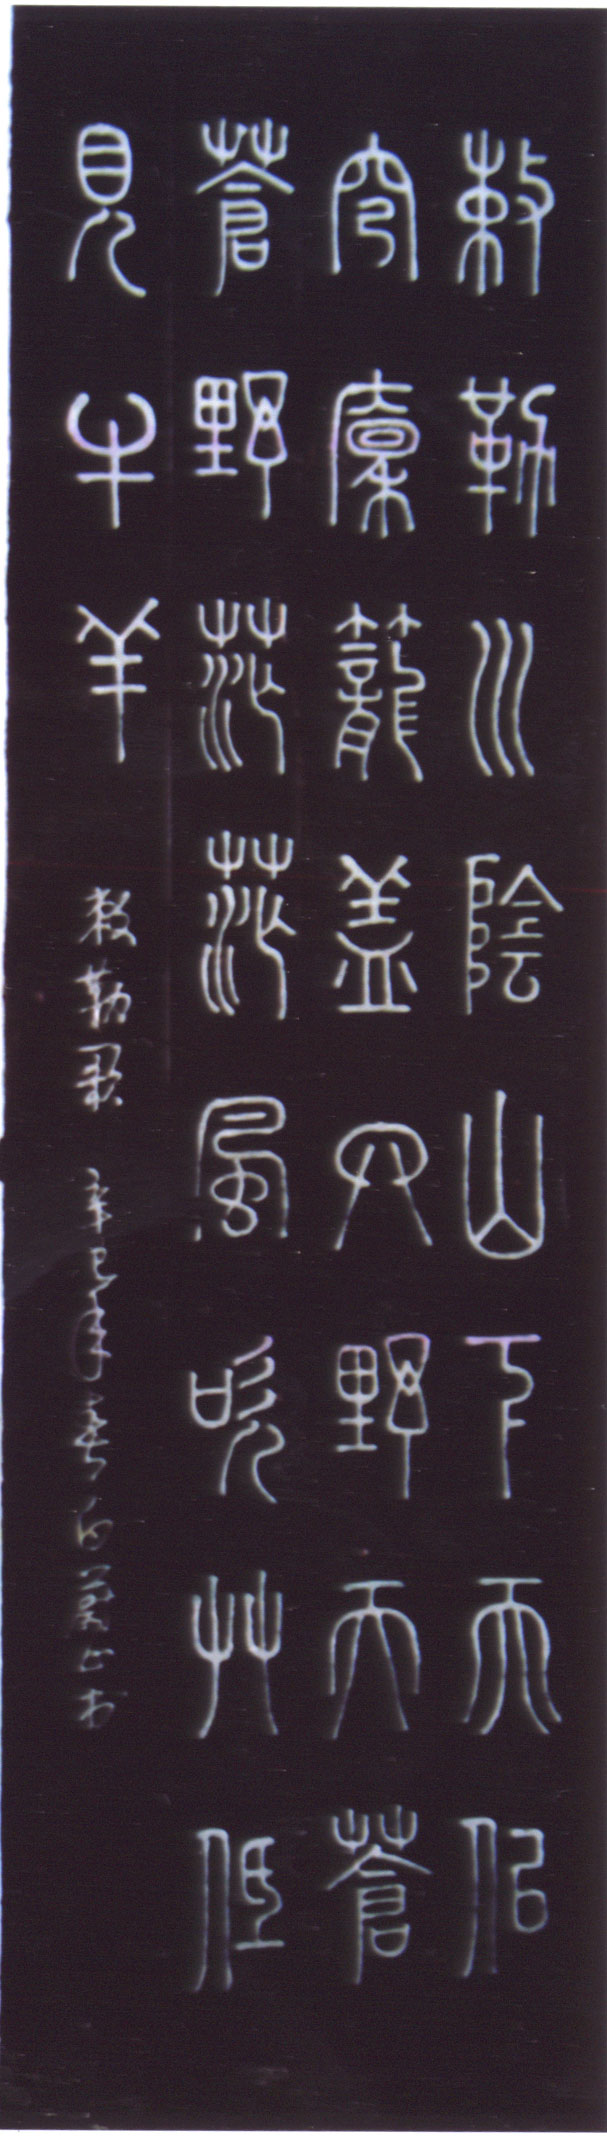 敕勒川陰山下天佀
穹廩籠蓋四野天蒼
蒼野茫茫風吹艸低
見牛羊
敕勒歌 辛巳年春